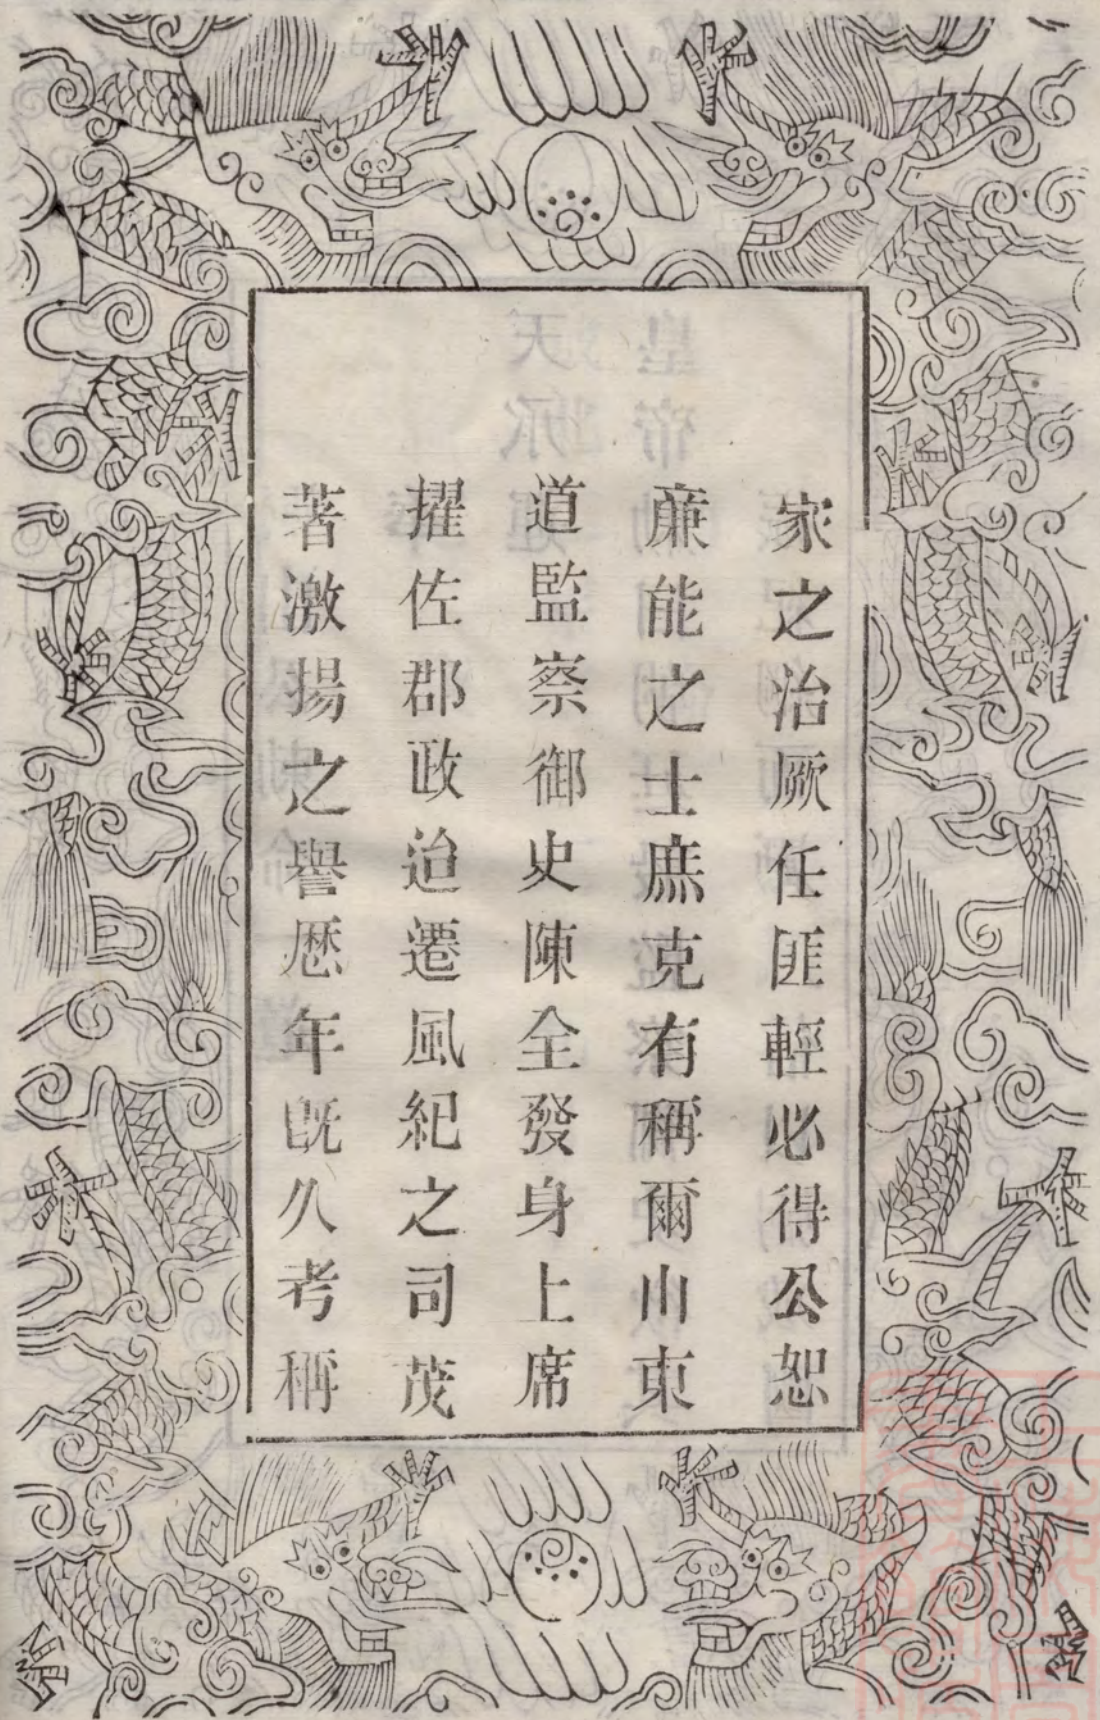 家之治厥任匪輕必得公恕
亷能之士庶克有稱爾山東
道監察御史陳全發身上席
擢佐郡政迨遷風紀之司茂
著激揚之譽歴年旣久考稱